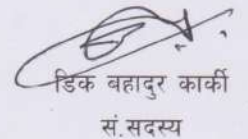 डिक बहादुर कार्की
सं.सदस्य